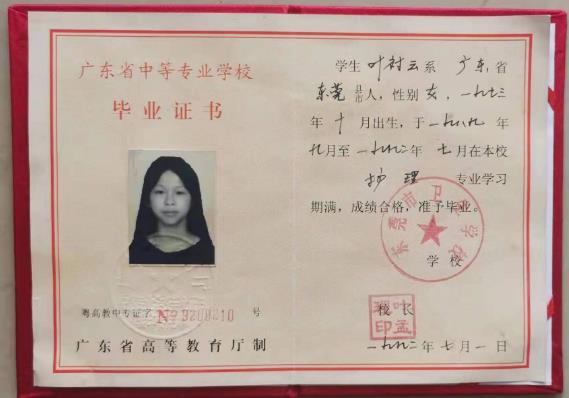 广东省中等专业学校
毕业证书
粤高教中专证字 No 9208210 号
广东省高等教育厅制
学生 叶衬云 系 广东 省
东莞 县市 人，性别 女，一九七三
年 十 月出生，于 一九八九 年
九月至 一九九二 年 七 月在本校
护理 专业学习
期满，成绩合格，准予毕业。
东莞市卫生学校
学校
校长
叶孟理印
一九九二年 七月一日